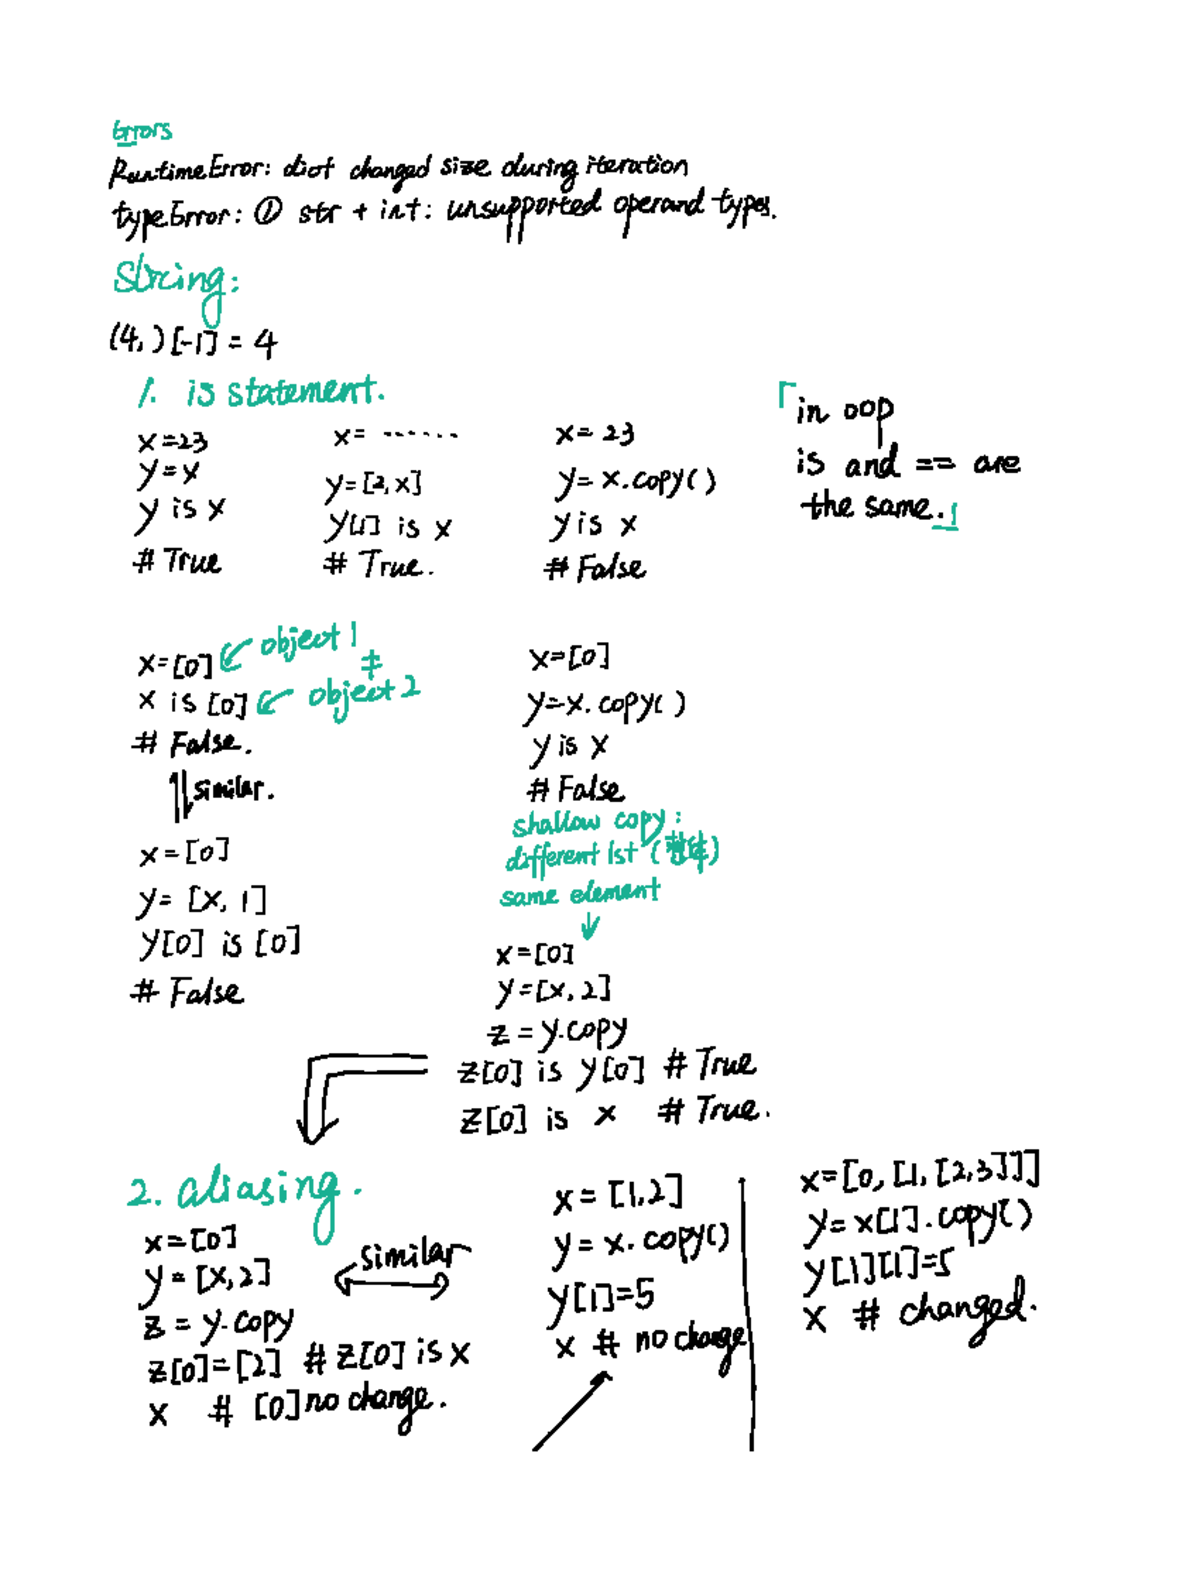 Errors
RuntimeError: dict changed size during iteration
typeError: ① str + int: unsupported operand types.
String:
(4, )[-1] = 4
1. is statement.
x=23
y=x
y is x
# True
x= ------
y=[2,x]
y[1] is x
# True.
x= 23
y= x.copy()
y is x
# False
「in oop
is and == are
the same.」
x=[0] ↙ object 1
≠
x is [0] ↙ object 2
# False.
⇅ similar.
x=[0]
y= [x, 1]
y[0] is [0]
# False
x=[0]
y=x.copy( )
y is x
# False
shallow copy:
different lst ( )
same element
↓
x=[0]
y=[x,2]
z = y.copy
z[0] is y[0] # True
z[0] is x # True.
2. aliasing.
x=[0]
y=[x,2]
z = y.copy
z[0]=[2] # z[0] is x
x # [0] no change.
similar
x= [1,2]
y= x.copy()
y[1]=5
x # no change
x=[0, [1, [2,3]]]
y= x[1].copy()
y[1][1]=5
x # changed.